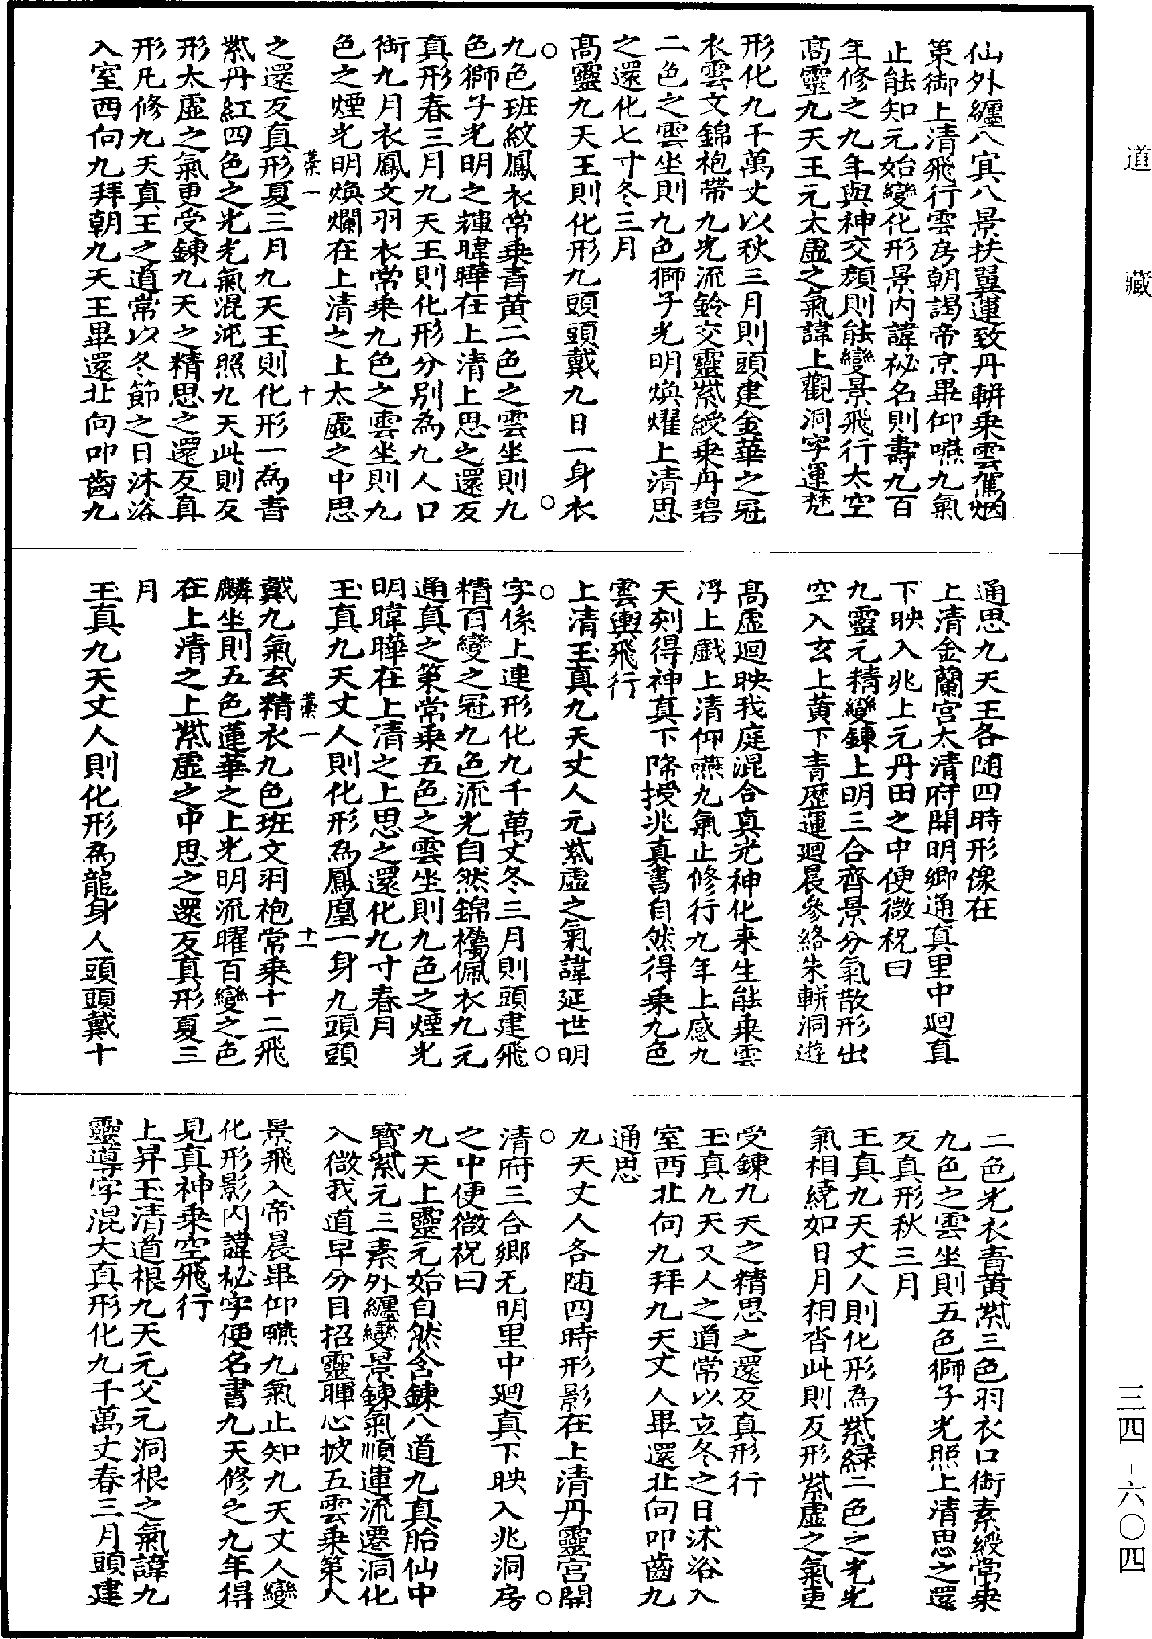 道藏
仙外纏八㝠八景扶翼運致丹軿乗雲駕烟
第御上清飛行雲房朝謁帝京畢仰嚥九氣
止能知元始變化形景内諱祕名則壽九百
年修之九年與神交顔則能變景飛行太空
髙靈九天王元太虛之氣諱上觀洞字運梵
形化九千萬丈以秋三月則頭建金華之冠
衣雲文錦袍帶九光流鈴交靈紫綬乗丹碧
二色之雲坐則九色獅子光明煥耀上清思
之還化七寸冬三月
髙靈九天王則化形九頭頭戴九日一身衣
九色班紋鳳衣常乗青黄二色之雲坐則九
色獅子光明之輝暐曄在上清上思之還反
真形春三月九天王則化形分别為九人口
銜九月衣鳳文羽衣常乗九色之雲坐則九
色之煙光明煥爛在上清之上太虛之中思
藁一 十
之還反真形夏三月九天王則化形一為青
紫丹紅四色之光光氣混沌照九天此則反
形太虛之氣更受鍊九天之精思之還反真
形凡修九天真王之道常以冬節之日沐浴
入室西向九拜朝九天王畢還北向叩齒九
通思九天王各随四時形像在
上清金蘭宫太清府開明鄉通真里中迴真
下映入兆上元丹田之中便微祝曰
九靈元精變鍊上明三合齊景分氣散形出
空入玄上黄下青歷運迴晨參絡朱軿洞遊
髙虛迴映我庭混合真光神化来生能乗雲
浮上戲上清仰嚥九氣止修行九年上感九
天刻得神真下降授兆真書自然得乗九色
雲輿飛行
上清玉真九天丈人元紫虛之氣諱延世明
字係上連形化九千萬丈冬三月則頭建飛
精百變之冠九色流光自然錦襦佩衣九元
通真之策常乗五色之雲坐則九色之煙光
明暐曄在上清之上思之還化九寸春月
玉真九天丈人則化形為鳳凰一身九頭頭
藁一 十一
戴九氣玄精衣九色班文羽袍常乗十二飛
麟坐則五色蓮華之上光明流曜百變之色
在上清之上紫虛之中思之還反真形夏三
月
玉真九天丈人則化形為龍身人頭頭戴十
二色光衣青黄紫三色羽衣口銜素綬常乗
九色之雲坐則五色獅子光照上清思之還
反真形秋三月
王真九天丈人則化形為紫緑二色之光光
氣相繞如日月相沓此則反形紫虛之氣更
受鍊九天之精思之還反真形行
玉真九天丈人之道常以立冬之日沭浴入
室西北向九拜九天丈人畢還北向叩齒九
通思
九天丈人各随四時形影在上清丹靈宫開
清府三合鄉无明里中迴真下映入兆洞房
之中便微祝曰
九天上靈元始自然含鍊八道九真胎仙中
寳紫元三素外纏變景鍊氣順運流遷洞化
入微我道早分目招靈暉心披五雲乗第入
景飛入帝晨畢仰嚥九氣止知九天丈人變
化形影内諱祕字便名書九天修之九年得
見真神乗空飛行
上昇玉清道根九天元父元洞根之氣諱九
靈導字混大真形化九千萬丈春三月頭建
三四-六〇四